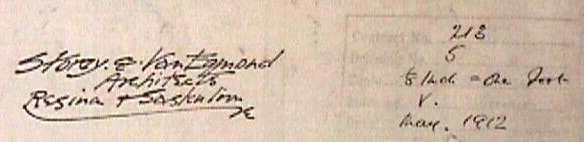 Storey & Van Egmond
Architects
Regina & Saskatoon
Contract No. 213
5
⅛ Inch = One Foot
V.
May. 1912